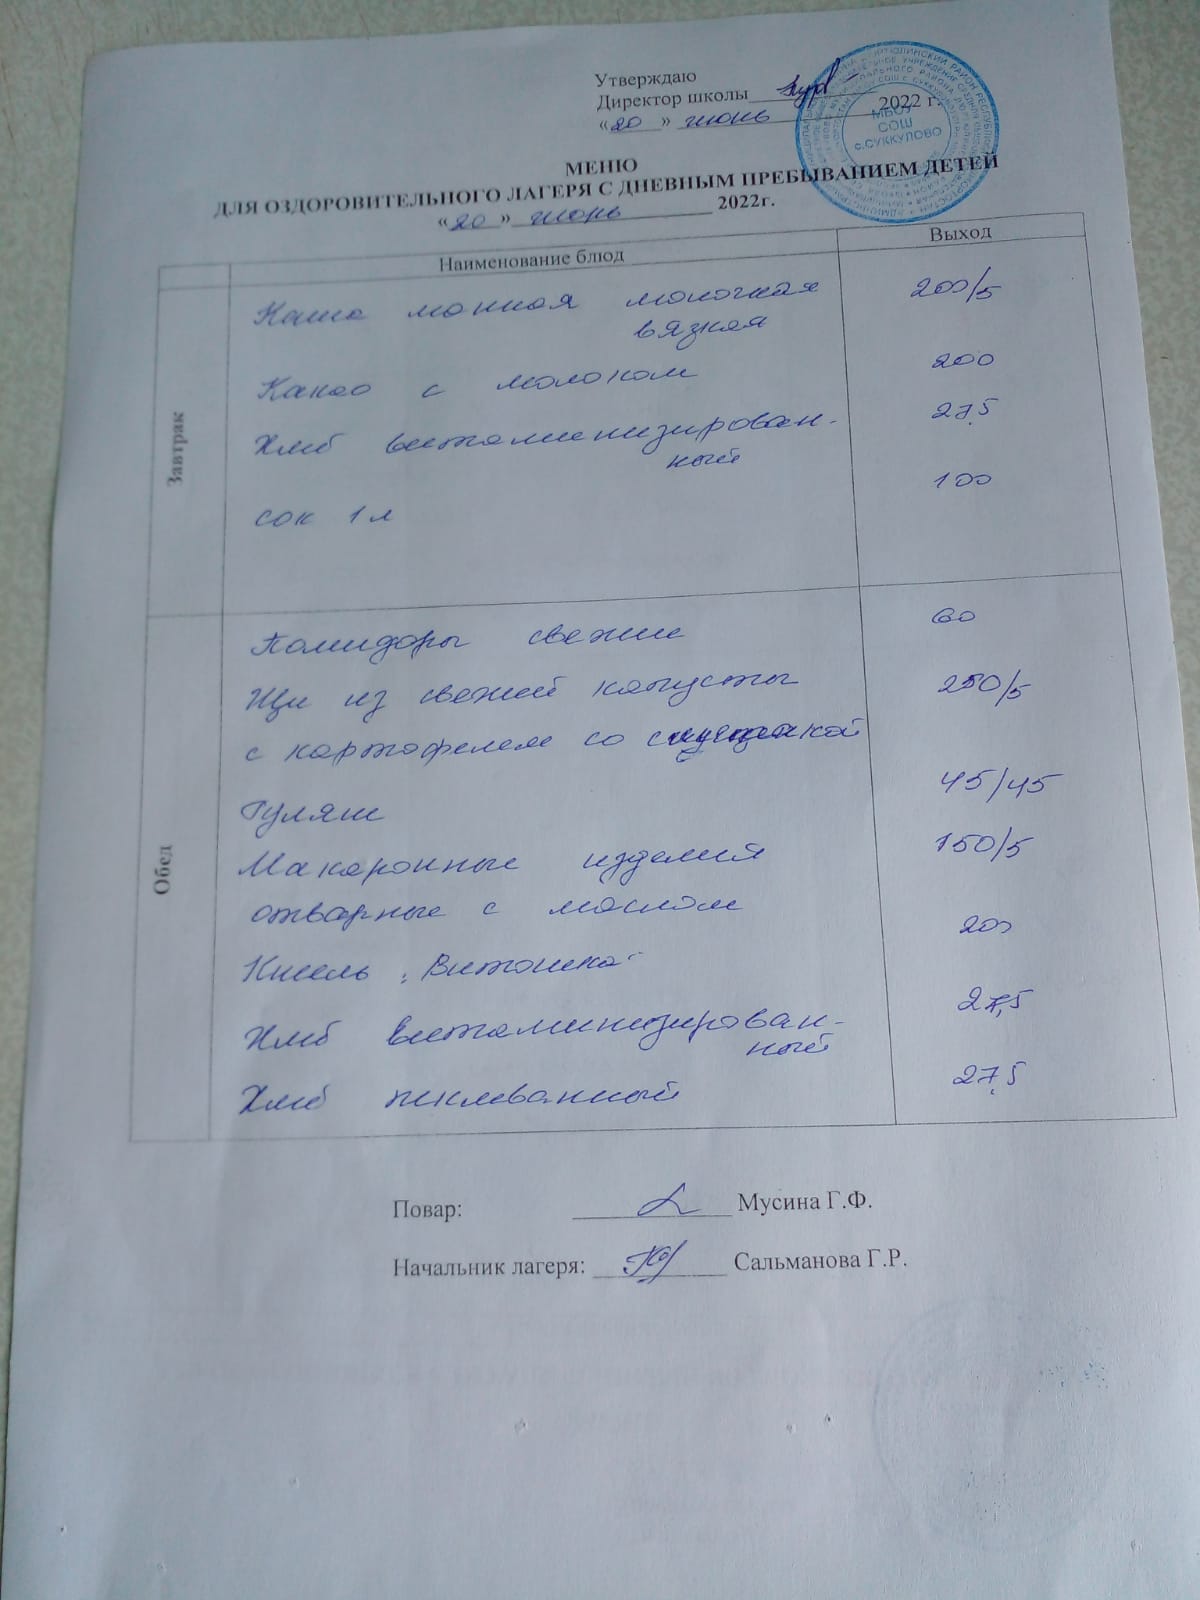 Утверждаю
Директор школы
«20» июнь 2022 г.
МБОУ
СОШ
с.СУККУЛОВО
МЕНЮ
ДЛЯ ОЗДОРОВИТЕЛЬНОГО ЛАГЕРЯ С ДНЕВНЫМ ПРЕБЫВАНИЕМ ДЕТЕЙ
«20» июнь 2022г.
Наименование блюд Выход
Завтрак
Каша манная молочная 200/5
вязкая
Какао с молоком 200
Хлеб витаминизирован- 27,5
ный
сок 1 л 100
Обед
Помидоры свежие 60
Щи из свежей капусты 250/5
с картофелем со сметаной
Гуляш 45/45
Макаронные изделия 150/5
отварные с маслом
Кисель „Витошка" 200
Хлеб витаминизирован- 27,5
ный
Хлеб пеклеванный 27,5
Повар: Мусина Г.Ф.
Начальник лагеря: Сальманова Г.Р.